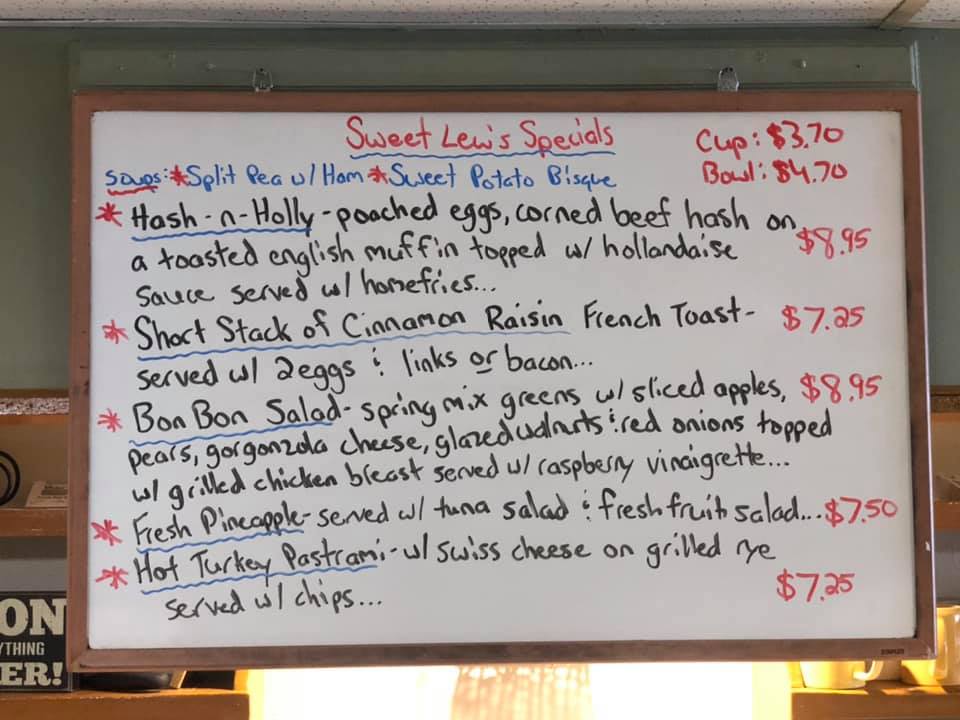 Sweet Lew's Specials
Cup: $3.70
Soups: *Split Pea w/ Ham *Sweet Potato Bisque
Bowl: $4.70
* Hash-n-Holly - poached eggs, corned beef hash on
a toasted english muffin topped w/ hollandaise $8.95
sauce served w/ homefries...
* Short Stack of Cinnamon Raisin French Toast - $7.25
served w/ 2 eggs & links or bacon...
* Bon Bon Salad - spring mix greens w/ sliced apples, $8.95
pears, gorgonzola cheese, glazed walnuts & red onions topped
w/ grilled chicken breast served w/ raspberry vinaigrette...
* Fresh Pineapple - served w/ tuna salad & fresh fruit salad... $7.50
* Hot Turkey Pastrami - w/ swiss cheese on grilled rye
served w/ chips... $7.25
STAPLES
ON
YTHING
ER!